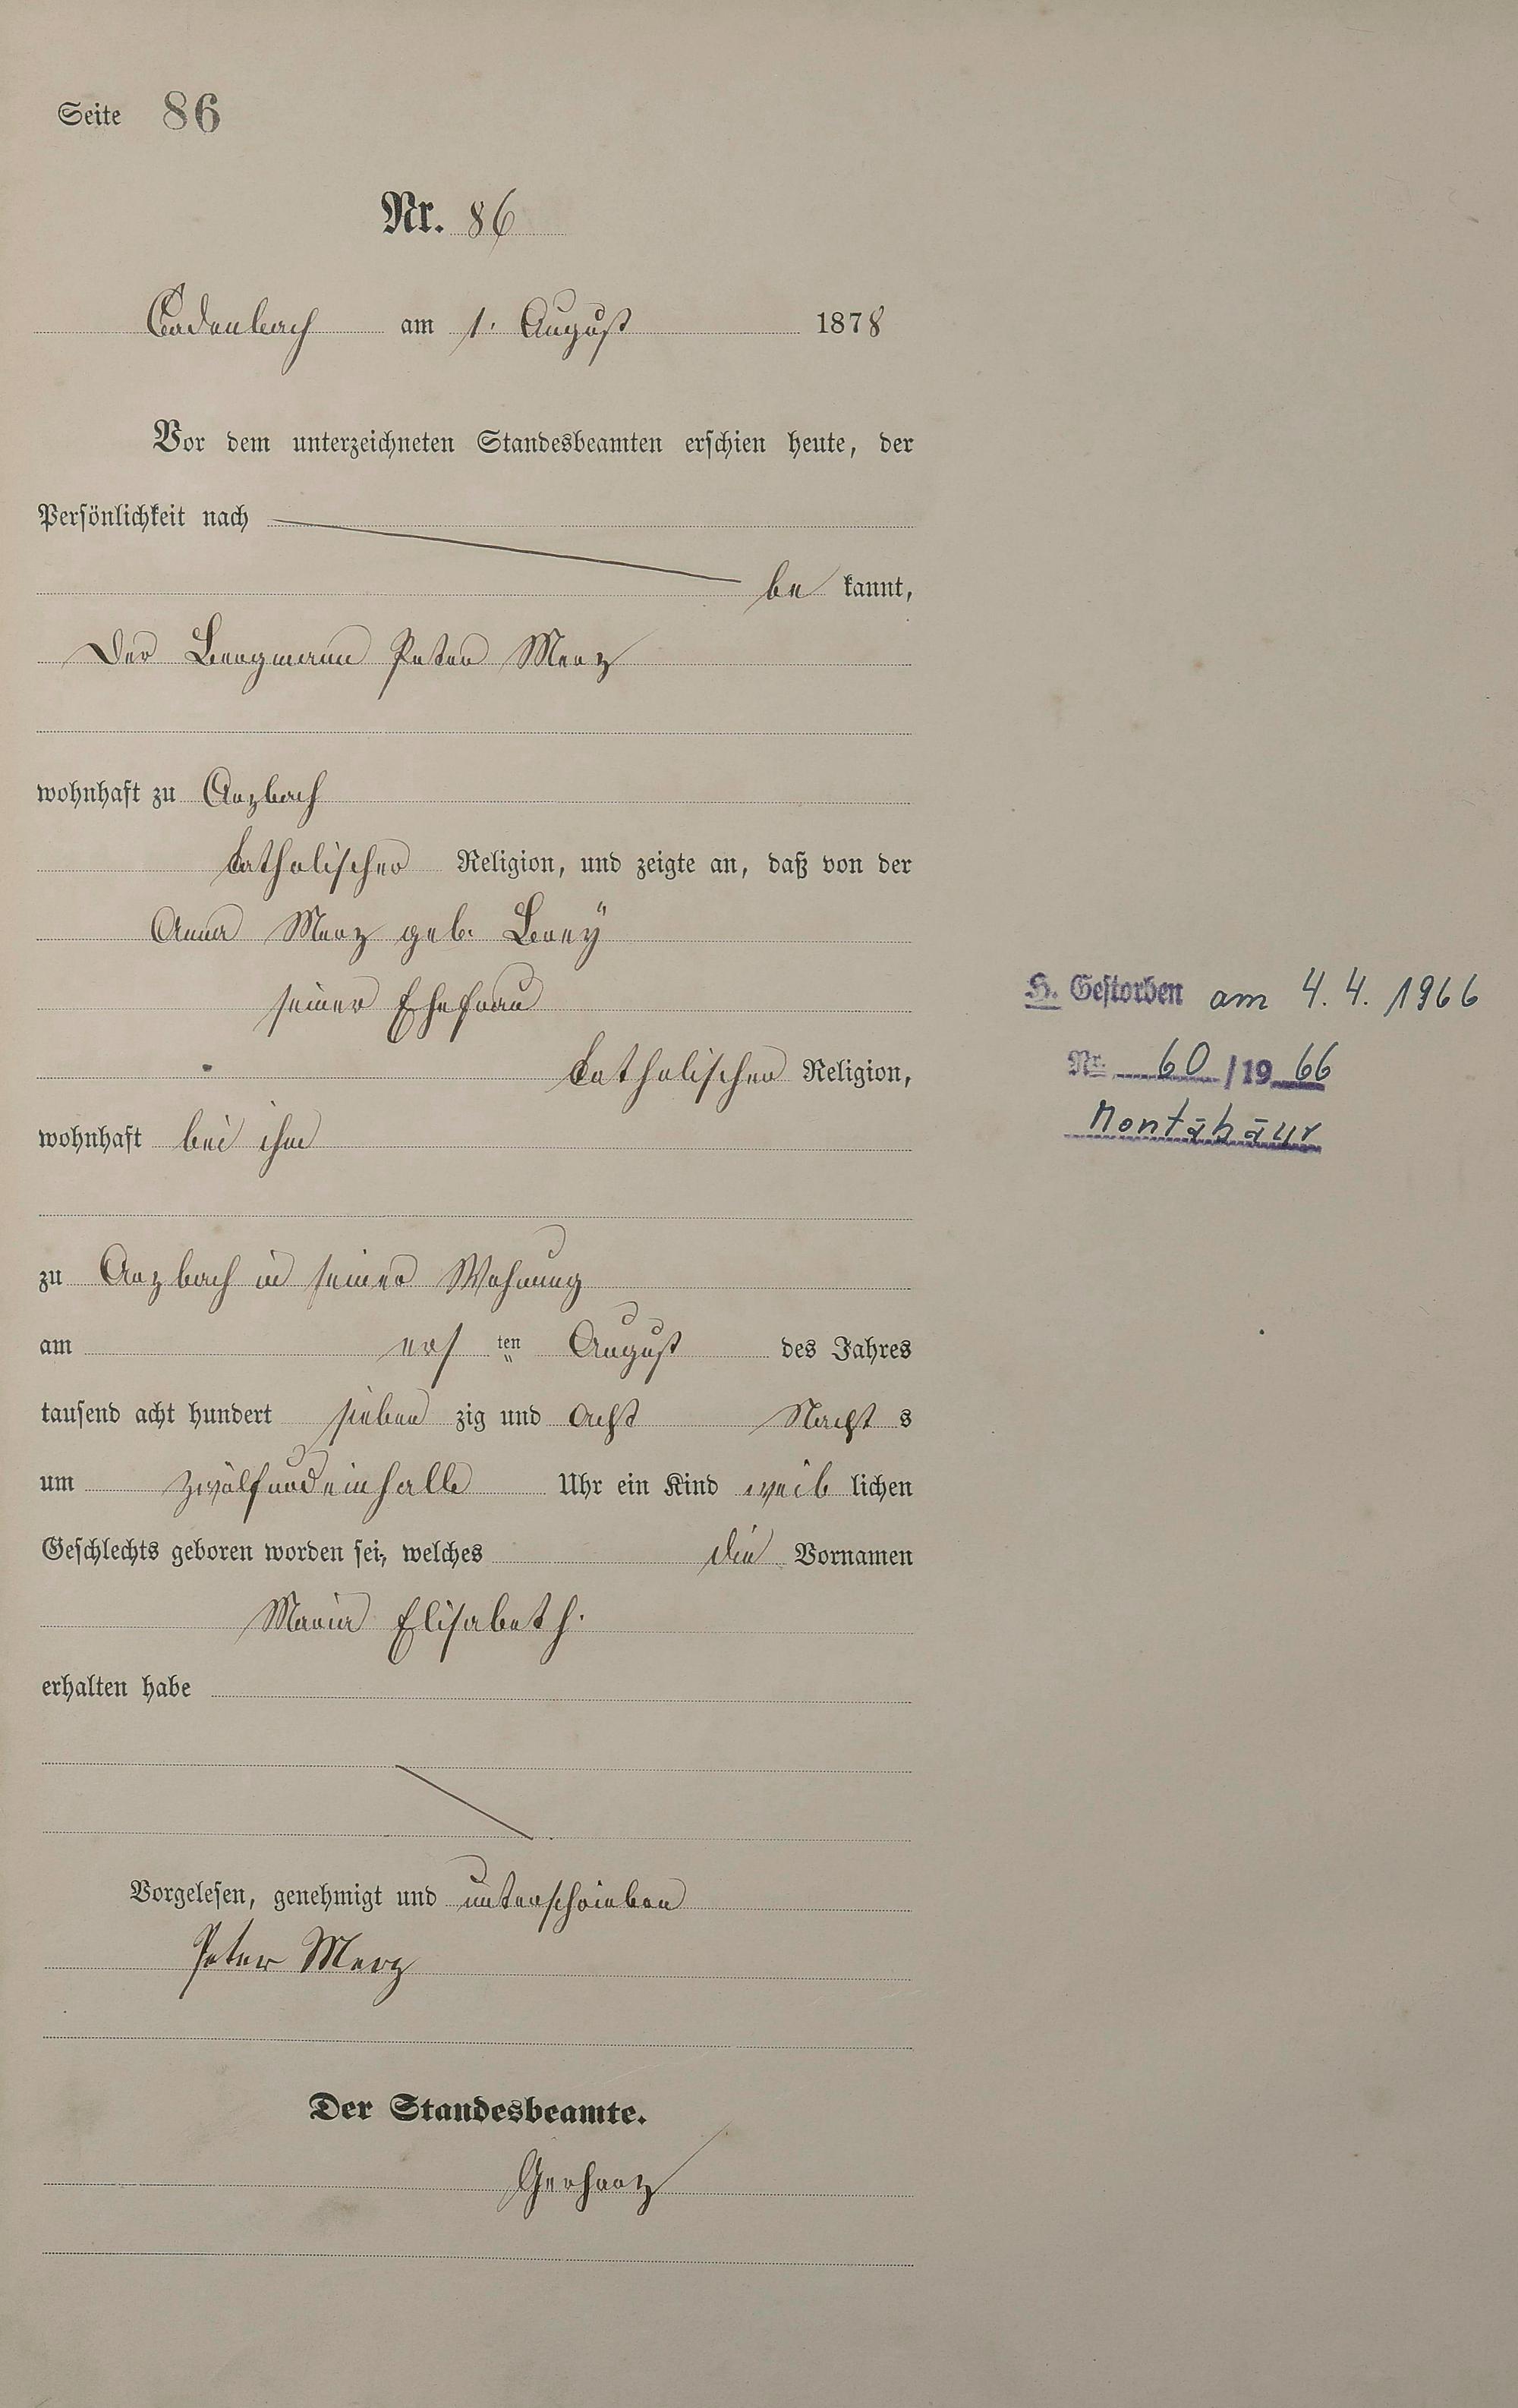 Seite 86
Nr. 86
Cadenbach am 1. August 1878
Vor dem unterzeichneten Standesbeamten erschien heute, der
Persönlichkeit nach
be kannt,
der Bergmann Peter Merz
wohnhaft zu Arzbach
katholischer Religion, und zeigte an, daß von der
Anna Merz geb.
seiner Ehefrau
katholischer Religion,
wohnhaft bei ihm
zu Arzbach in seiner Wohnung
am ers ten August des Jahres
tausend acht hundert sieben zig und acht Nacht s
um zwölfundeinhalb Uhr ein Kind weib lichen
Geschlechts geboren worden sei, welches die Vornamen
Maria Elisabeth.
erhalten habe
Vorgelesen, genehmigt und unterschrieben
Peter Merz
Der Standesbeamte.
Gerharz
H. Gestorben am 4. 4. 1966
Nr. 60 / 19 66
Montabaur